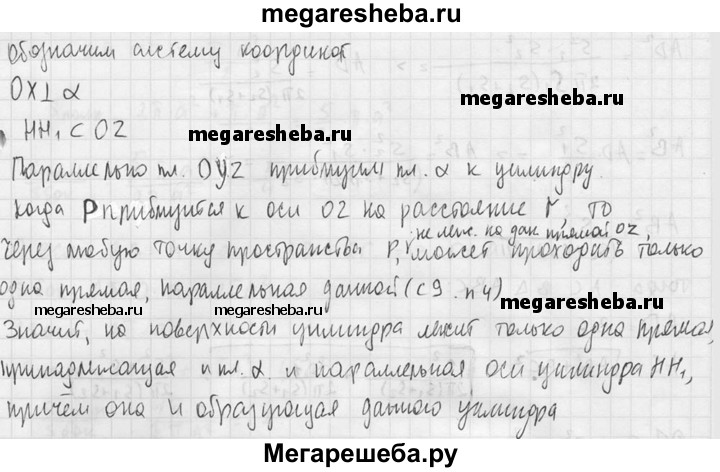 megaresheba.ru
Обозначим систему координат
OX⊥α
HH₁⊂OZ
megaresheba.ru
megaresheba.ru
Параллельно пл. OYZ приблизим пл. α к цилиндру.
Когда P приблизится к оси OZ на расстояние r, то
не леж. на дан. прямой OZ,
через любую точку пространства P, может проходить только
одна прямая, параллельная данной (с 9 п 4)
megaresheba.ru
megaresheba.ru
megaresheba.ru
Значит, на поверхности цилиндра лежит только одна прямая,
принадлежащая и пл. α и параллельная оси цилиндра HH₁,
причём она и образующая данного цилиндра
Мегарешеба.ру